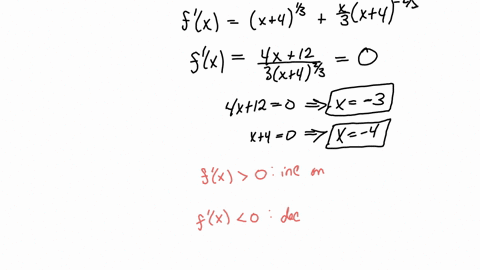 f'(x) = (x+4)^{1/3} + x/3 (x+4)^{-2/3}
f'(x) = (4x+12)/(3(x+4)^{2/3}) = 0
4x+12=0 ⇒ x=-3
x+4=0 ⇒ x=-4
f'(x) > 0 : inc on
f'(x) < 0 : dec